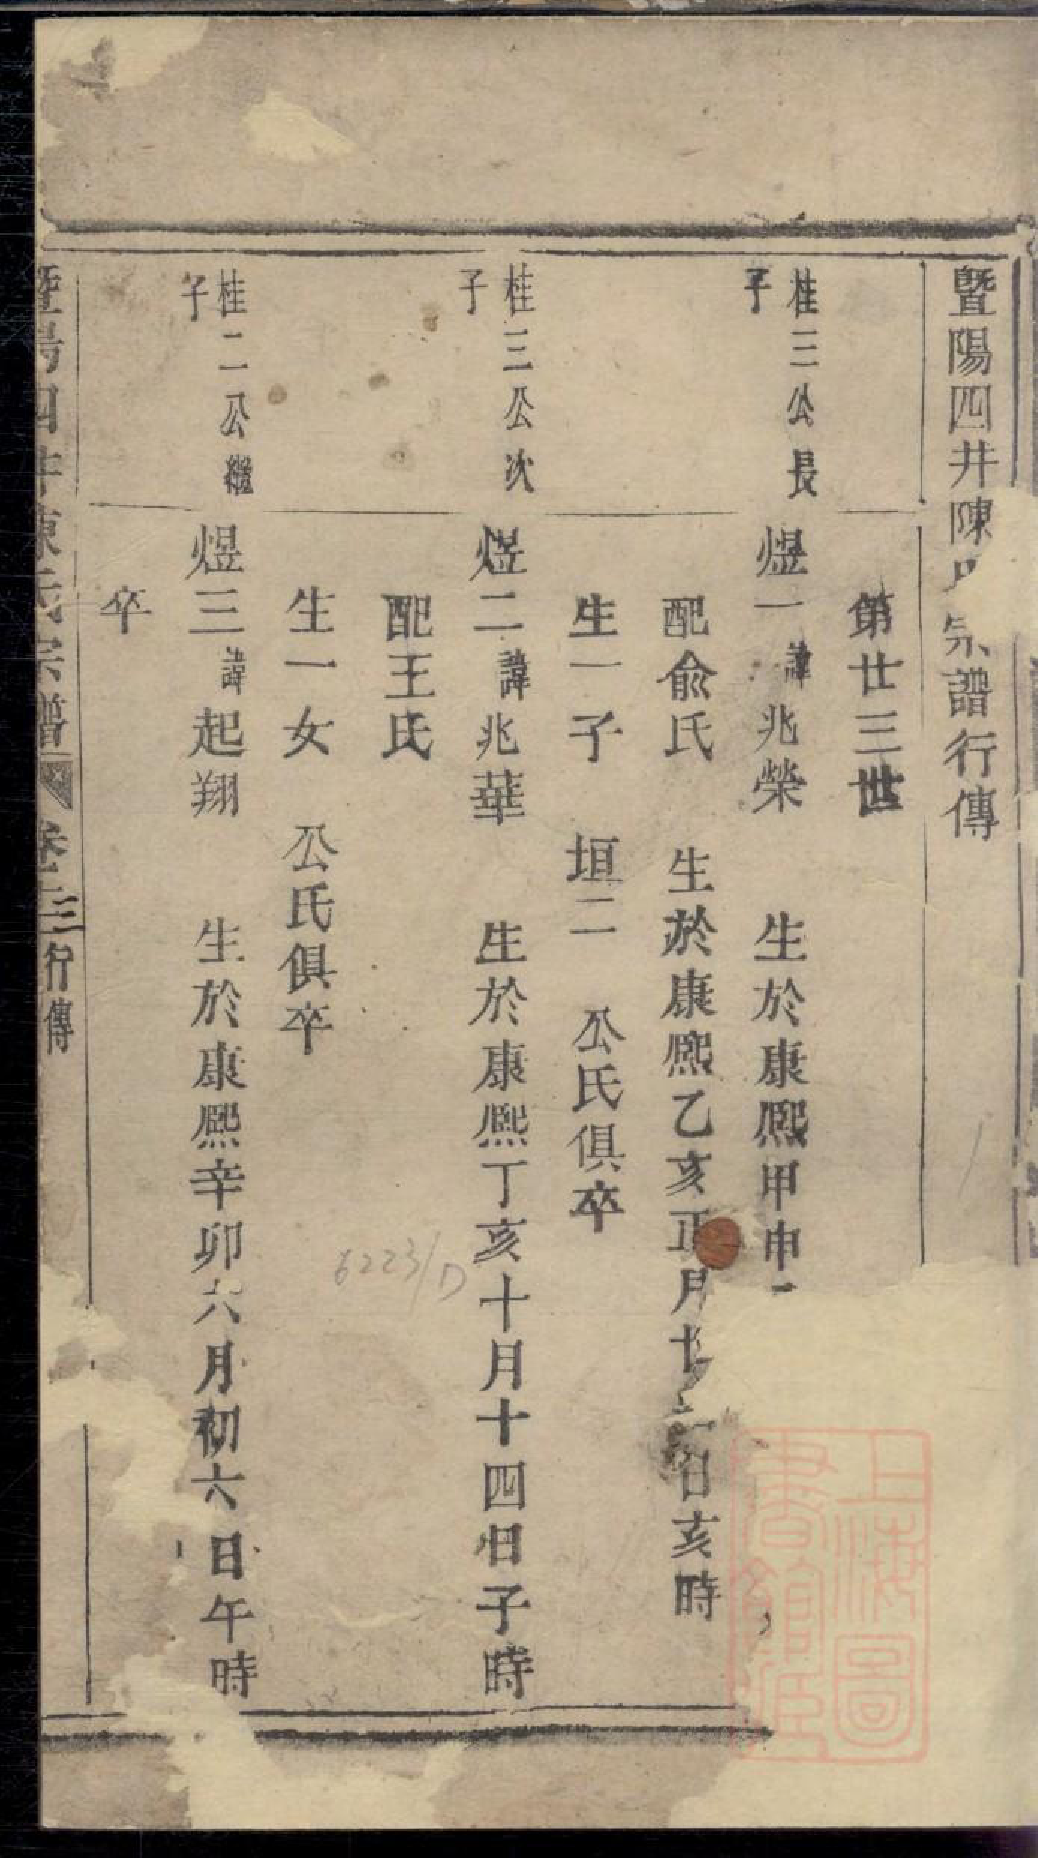 暨陽四井陳氏宗譜行傳
第廿三世
桂三公長子
煜一諱兆榮 生於康熙甲申
配俞氏 生於康熙乙亥正月十日亥時
生一子 垣二 公氏俱卒
桂三公次子
煜二諱兆華 生於康熙丁亥十月十四日子時
配王氏
生一女 公氏俱卒
桂二公繼子
煜三諱起翔 生於康熙辛卯六月初六日午時
卒
暨陽四井陳氏宗譜 卷十三 行傳
6223/D
上海圖書館藏